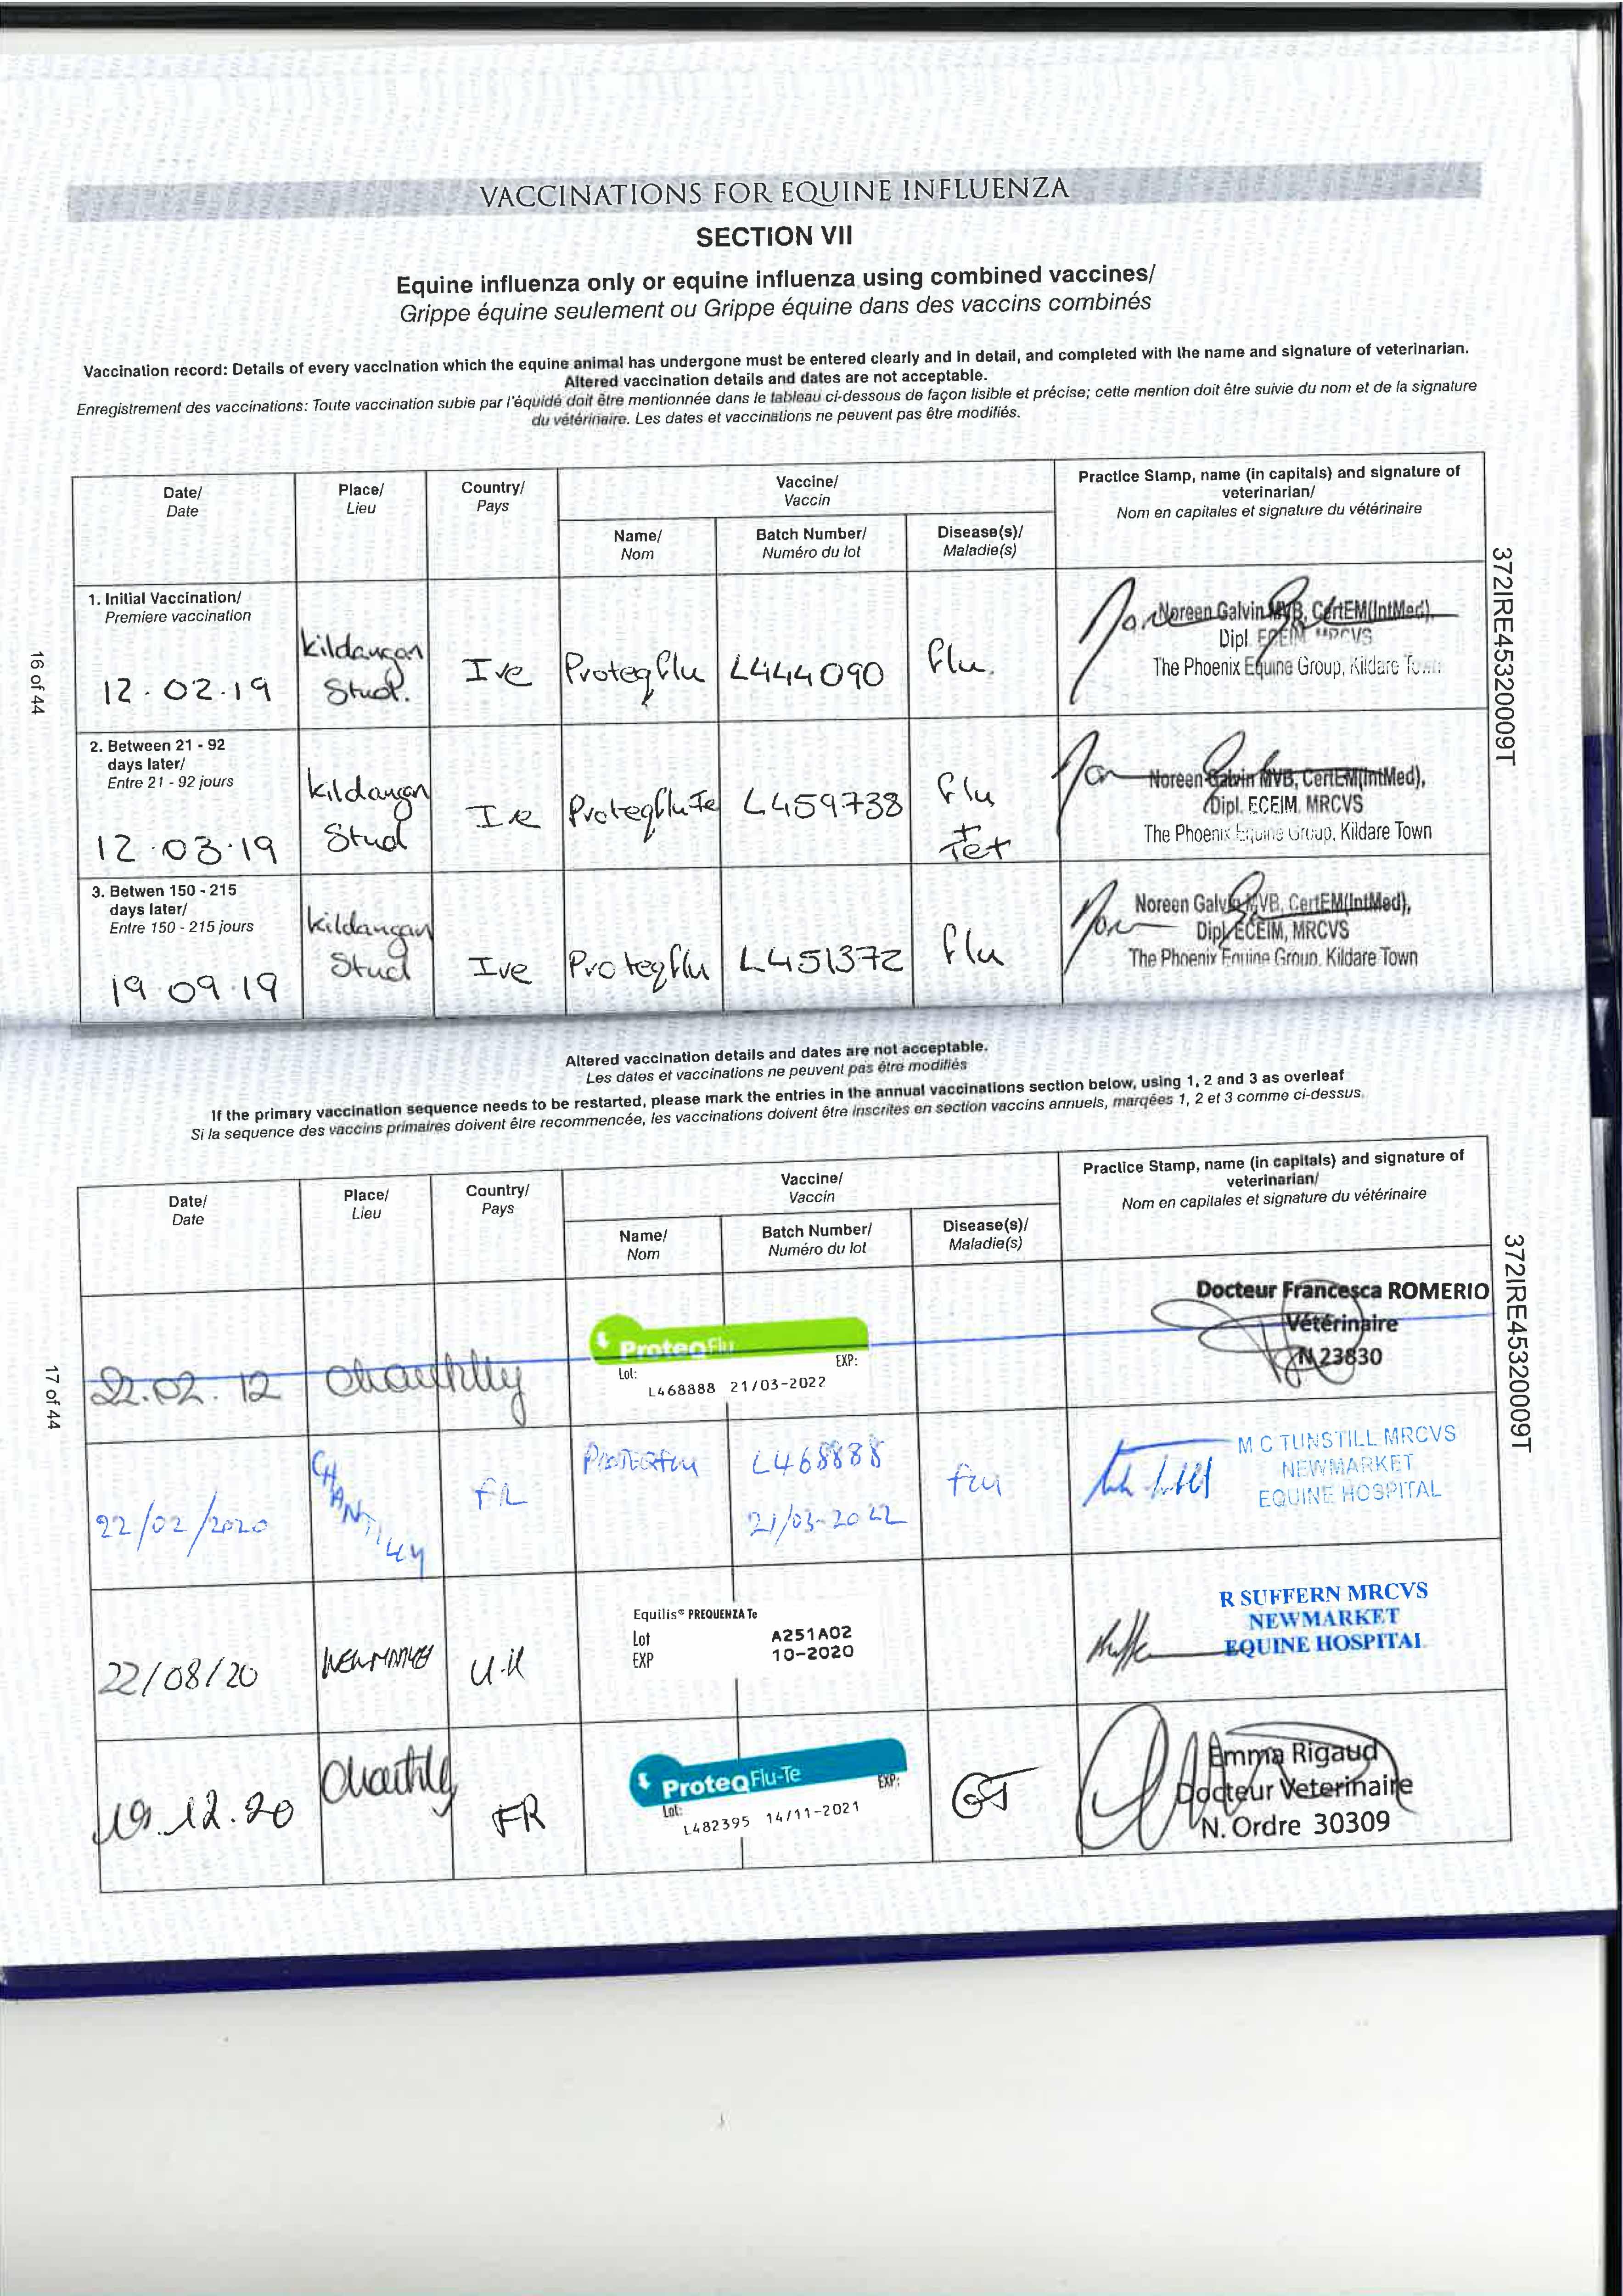 VACCINATIONS FOR EQUINE INFLUENZA
SECTION VII
Equine influenza only or equine influenza using combined vaccines/
Grippe équine seulement ou Grippe équine dans des vaccins combinés
Vaccination record: Details of every vaccination which the equine animal has undergone must be entered clearly and in detail, and completed with the name and signature of veterinarian.
Altered vaccination details and dates are not acceptable.
Enregistrement des vaccinations: Toute vaccination subie par l'équidé doit être mentionnée dans le tableau ci-dessous de façon lisible et précise; cette mention doit être suivie du nom et de la signature
du vétérinaire. Les dates et vaccinations ne peuvent pas être modifiés.
Date/
Date
Place/
Lieu
Country/
Pays
Vaccine/
Vaccin
Name/
Nom
Batch Number/
Numéro du lot
Disease(s)/
Maladie(s)
Practice Stamp, name (in capitals) and signature of
veterinarian/
Nom en capitales et signature du vétérinaire
1. Initial Vaccination/
Premiere vaccination
12.02.19
Kildangan
Stud.
Ire
Proteqflu
L444090
flu.
Noreen Galvin MVB, CertEM(IntMed),
Dipl ECEIM MRCVS
The Phoenix Equine Group, Kildare Town
2. Between 21 - 92
days later/
Entre 21 - 92 jours
12.03.19
Kildangan
Stud
Ire
ProteqfluTe
L459738
flu
+
Tet
Noreen Galvin MVB, CertEM(IntMed),
Dipl. ECEIM, MRCVS
The Phoenix Equine Group, Kildare Town
3. Betwen 150 - 215
days later/
Entre 150 - 215 jours
19.09.19
Kildangan
Stud
Ire
Proteqflu
L451372
flu
Noreen Galvin MVB, CertEM(IntMed),
Dipl ECEIM, MRCVS
The Phoenix Equine Group, Kildare Town
16 of 44
372IRE45320009T
Altered vaccination details and dates are not acceptable.
Les dates et vaccinations ne peuvent pas être modifiés
If the primary vaccination sequence needs to be restarted, please mark the entries in the annual vaccinations section below, using 1, 2 and 3 as overleaf
Si la sequence des vaccins primaires doivent être recommencée, les vaccinations doivent être inscrites en section vaccins annuels, marqées 1, 2 et 3 comme ci-dessus.
Date/
Date
Place/
Lieu
Country/
Pays
Vaccine/
Vaccin
Name/
Nom
Batch Number/
Numéro du lot
Disease(s)/
Maladie(s)
Practice Stamp, name (in capitals) and signature of
veterinarian/
Nom en capitales et signature du vétérinaire
22.02.12
Chantilly
ProteqFlu
Lot:
EXP:
L468888 21/03-2022
Docteur Francesca ROMERIO
Vétérinaire
N 23830
22/02/2020
CHANTILLY
FR
Proteqflu
L468888
21/03-2022
flu
M C TUNSTILL MRCVS
NEWMARKET
EQUINE HOSPITAL
22/08/20
NEWMARKET
U.K
Equilis® PREQUENZA Te
Lot A251A02
EXP 10-2020
R SUFFERN MRCVS
NEWMARKET
EQUINE HOSPITAL
19.12.20
Chantilly
FR
ProteqFlu-Te
Lot:
EXP:
L482395 14/11-2021
GT
Emma Rigaud
Docteur Veterinaire
N. Ordre 30309
17 of 44
372IRE45320009T